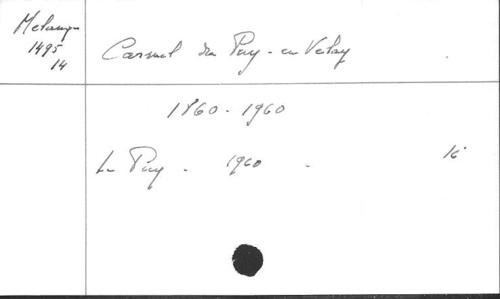 Mélanges
1495
14
Carmel du Puy-en Velay
1860-1960
Le Puy - 1960 -